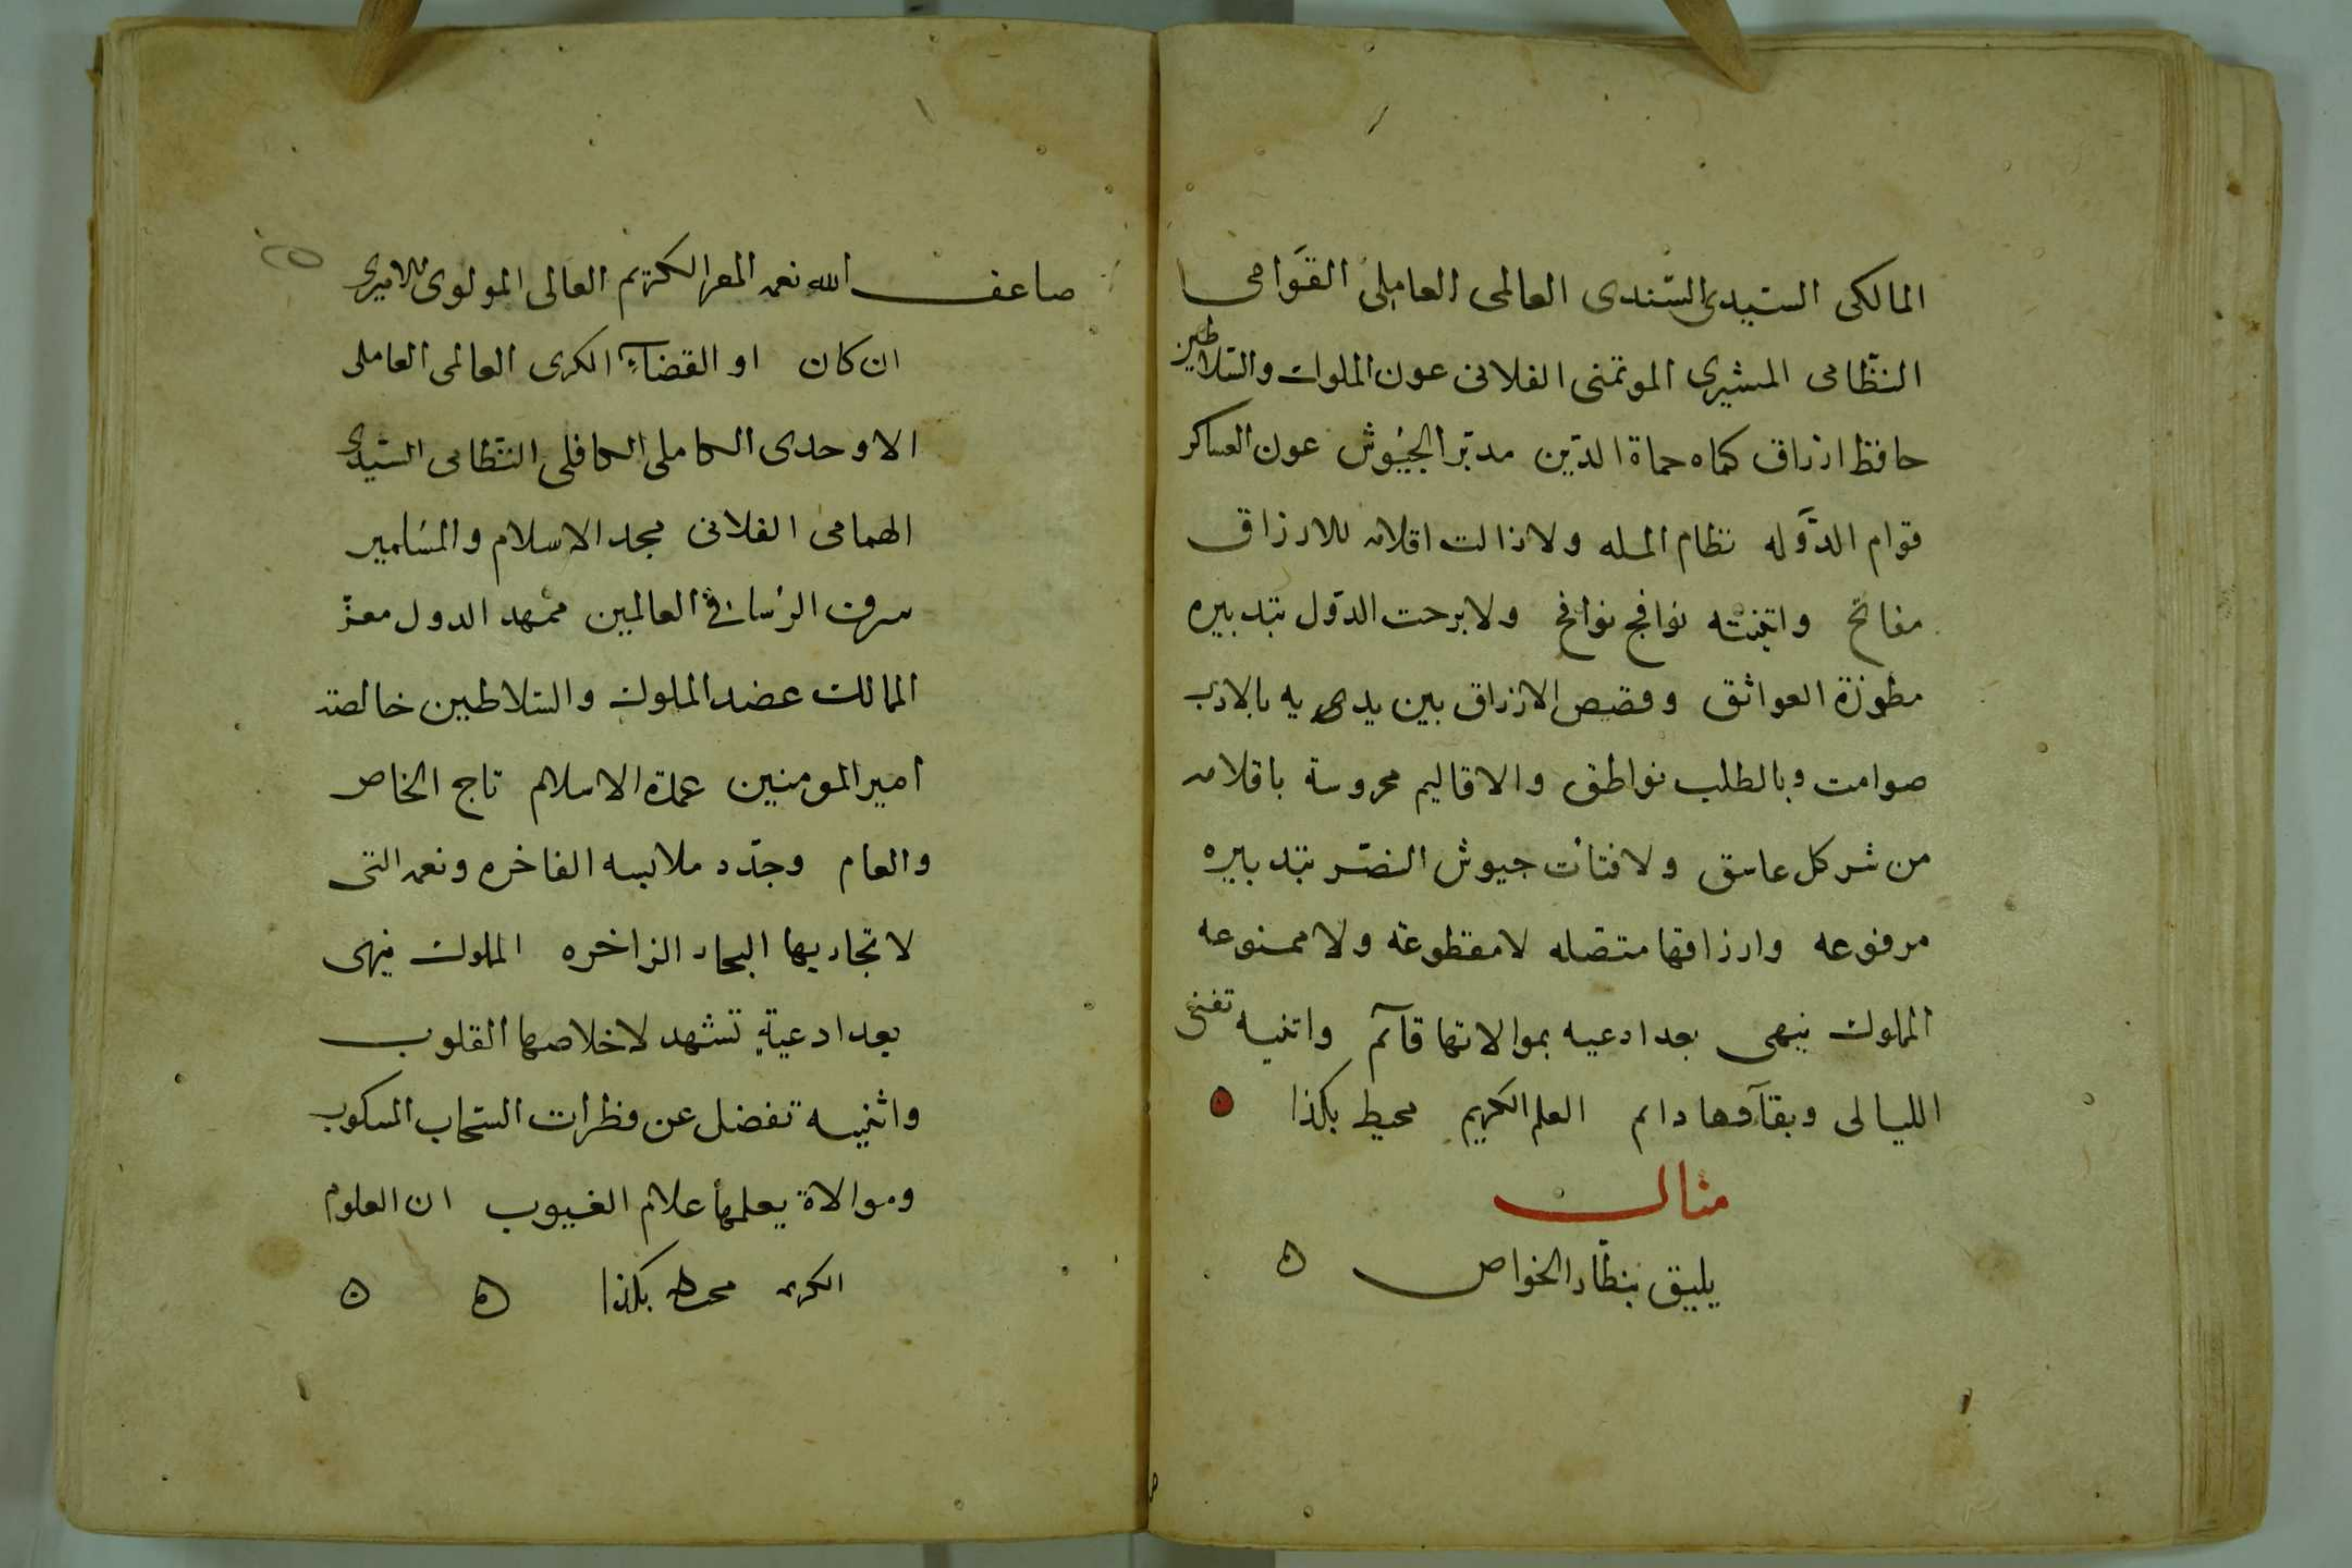 المالكى السيدى السندى العالمى العاملى القوامى
النظامى المشيرى الموتمنى الفلانى عون الملوك والسلاطين
حافظ ارزاق كماه حماة الدين مدبر الجيوش عون العساكر
قوام الدوله نظام المله ولا زالت اقلامه للارزاق
مفاتح واثنيته نوافج نوافح ولا برحت الدول بتدبيره
العواتق وقصص الارزاق بين يديه بالادب
صوامت وبالطلب نواطق والاقاليم محروسة باقلامه
من شر كل غاسق ولا فتأت جيوش النصر بتدبيره
مرفوعه وارزاقها متصله لا مقطوعة ولا ممنوعه
المملوك ينهى بعد ادعيه بموالاتها قآئم واثنيه تفنى
الليالى وبقآوها دائم العلم الكريم محيط بكذا
مثال
يليق بنظار الخواص
ضاعف الله نعمه المقر الكريم العالى المولوى الاميرى
ان كان او القضاء الكرى العالمى العاملى
الاوحدى الكاملى الكافلى النظامى السيدى
الهمامى الفلانى مجد الاسلام والمسلمين
شرف الرؤسا فى العالمين ممهد الدول معز
الممالك عضد الملوك والسلاطين خالصة
امير المومنين عمدة الاسلام تاج الخاص
والعام وجدد ملابسه الفاخره ونعمه التى
لا تجاريها البحار الزاخره المملوك ينهى
بعد ادعية تشهد لاخلاصها القلوب
واثنيه تفضل عن قطرات السحاب المسكوب
وموالاة يعلمها علام الغيوب ان العلوم
الكريمه محيطه بكذا